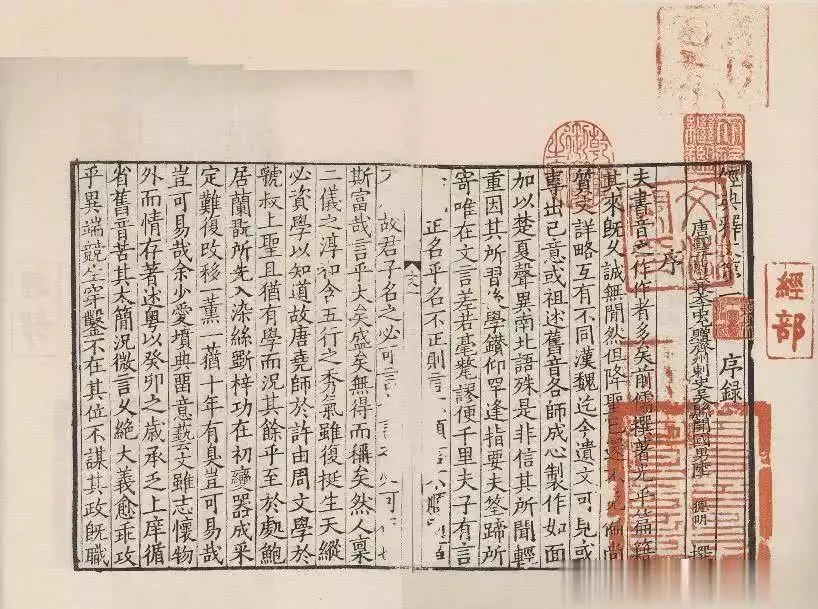 經部
經典釋文 一 序錄
唐 兼太 贈齊州刺史吳縣開國男陸 德明 撰
序
夫書音之作作者多矣前儒撰著光乎篇籍
其來旣久誠無間然但降聖已還不免偏尚
質文詳略互有不同漢魏迄今遺文可見或
專出己意或祖述舊音各師成心製作如面
加以楚夏聲異南北語殊是非信其所聞輕
重因其所習後學鑽仰罕逢指要夫筌蹄所
寄唯在文言差若毫氂謬便千里夫子有言
正名乎名不正則言 順言
故君子名之必可言
斯富哉言乎大矣盛矣無得而稱矣然人稟
二儀之淳和含五行之秀氣雖復挺生天縱
必資學以知道故唐堯師於許由周文學於
虢叔上聖且猶有學而況其餘乎至於處鮑
居蘭翫所先入染絲斲梓功在初變器成采
定難復改移一薰一蕕十年有臭豈可易哉
豈可易哉余少愛墳典留意藝文雖志懷物
外而情存著述粵以癸卯之歲承乏上庠循
省舊音苦其太簡況微言久絕大義愈乖攻
乎異端競生穿鑿不在其位不謀其政旣職